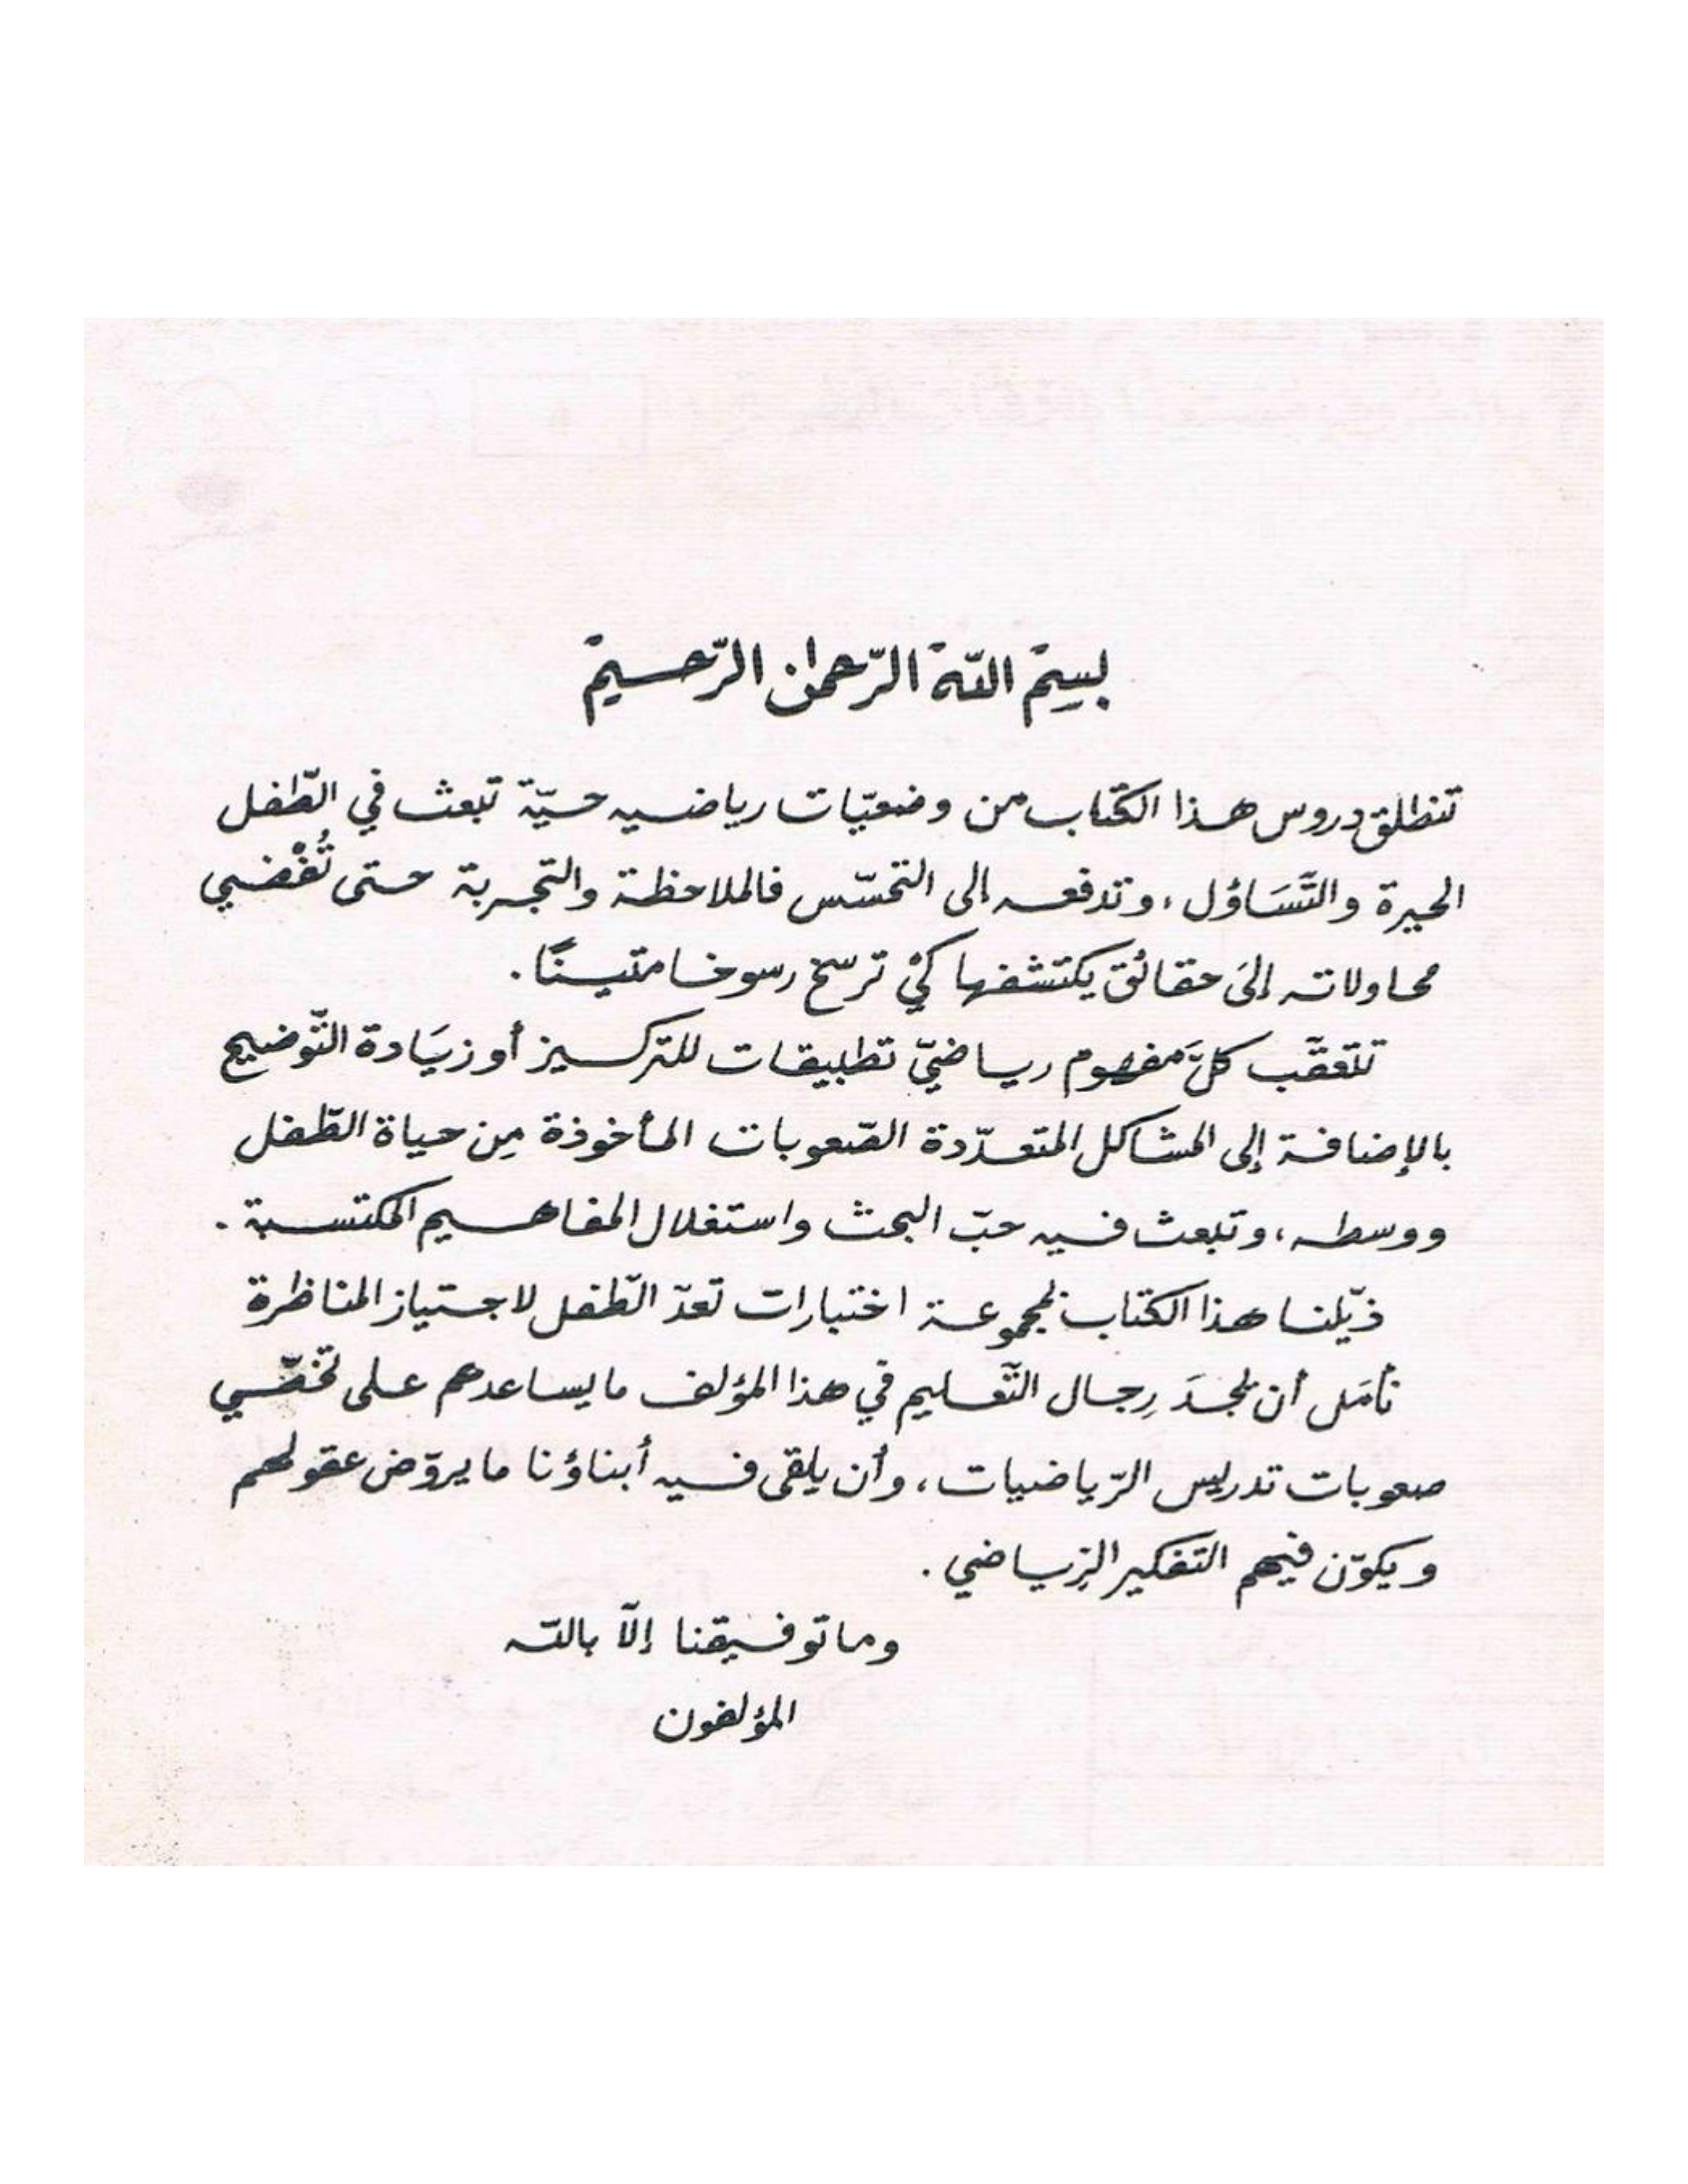 بسم الله الرّحمان الرّحيم
تنطلق دروس هذا الكتاب من وضعيّات رياضيه حيّة تبعث في الطّفل
الحيرة والتَّسَاؤل ، وتدفعه إلى التحسّس فالملاحظة والتجربة حتى تُفْضي
محاولاته إلىَ حقائق يكتشفها كيْ ترسخ رسوخا متينًا .
تتعقّب كلَّ مفهوم رياضيّ تطبيقات للتركيز أو زيَادة التّوضيح
بالإضافة إلى المشاكل المتعدّدة الصّعوبات المأخوذة مِن حياة الطّفل
ووسطه ، وتبعث فيه حبّ البحث واستغلال المفاهيم المكتسبة .
ذيّلنا هذا الكتاب بمجموعة اختبارات تعدّ الطّفل لاجتياز المناظرة
نأمَل أن يجدَ رِجال التّعليم في هذا المؤلف ما يساعدهم على تخطّي
صعوبات تدريس الرّياضيات ، وأن يلقى فيه أبناؤنا ما يروّض عقولهم
ويكوّن فيهم التفكير الرّياضي .
وما توفيقنا إلاّ بالله
المؤلفون